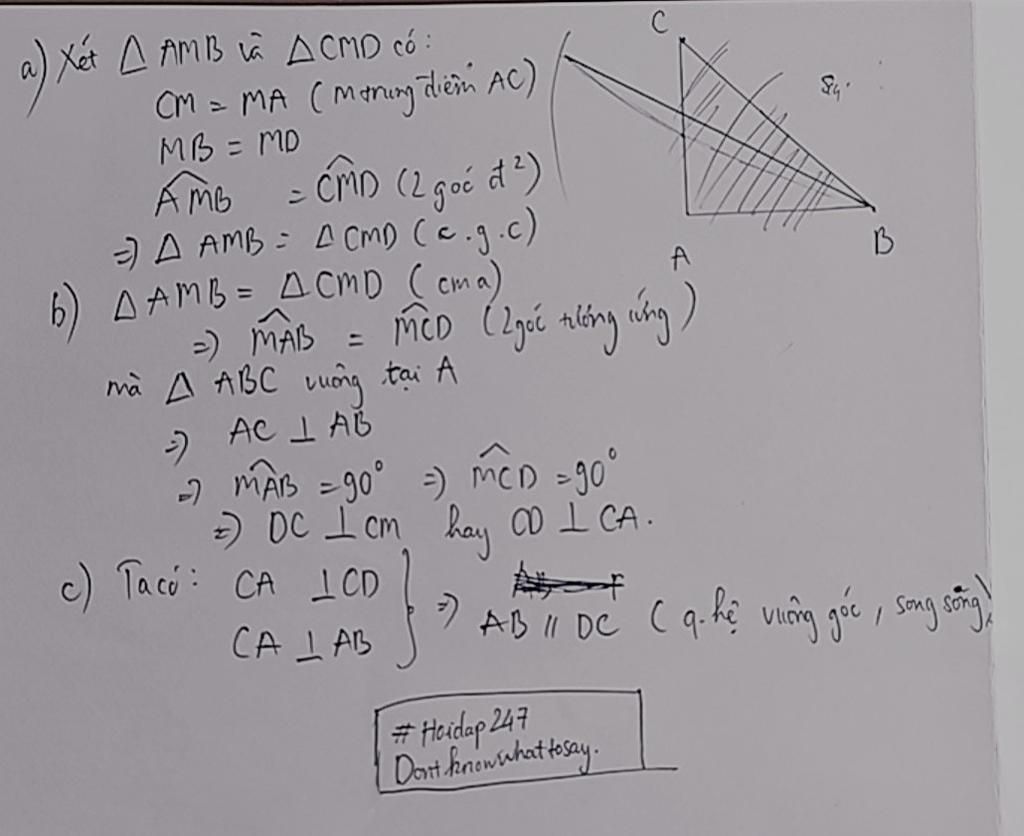 a) Xét △ AMB và △ CMD có:
CM = MA (M trung điểm AC)
MB = MD
\widehat{AMB} = \widehat{CMD} (2 góc đ²)
=> △ AMB = △ CMD (c.g.c)
b) △ AMB = △ CMD (cm a)
=> \widehat{MAB} = \widehat{MCD} (2 góc tương ứng)
mà △ ABC vuông tại A
=> AC ⊥ AB
=> \widehat{MAB} = 90° => \widehat{MCD} = 90°
=> DC ⊥ CM hay CD ⊥ CA.
c) Ta có: CA ⊥ CD
CA ⊥ AB
} => AB // DC (q.hệ vuông góc, song song)
C
A
B
#Hoidap247
Dont know what to say.